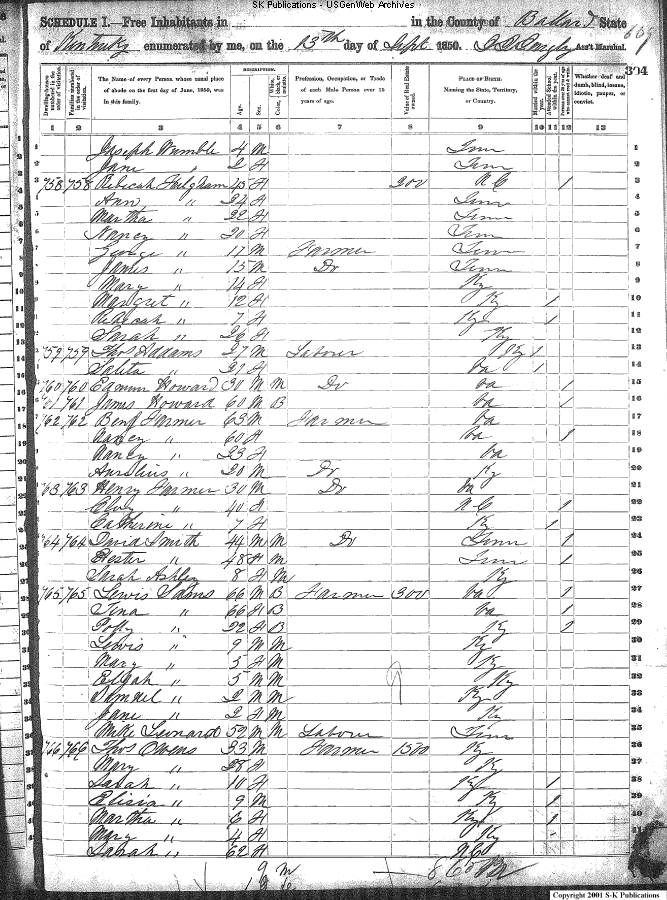 S-K Publications - USGenWeb Archives
SCHEDULE I.—Free Inhabitants in in the County of Ballard State
of Kentucky enumerated by me, on the 13th day of Sept 1850. Ass't Marshal.
609
304
Dwelling-houses numbered in the order of visitation.
Families numbered in the order of visitation.
The Name of every Person whose usual place of abode on the first day of June, 1850, was in this family.
DESCRIPTION.
Age.
Sex.
Color, White, black, or mulatto.
Profession, Occupation, or Trade of each Male Person over 15 years of age.
Value of Real Estate owned.
PLACE OF BIRTH. Naming the State, Territory, or Country.
Married within the year.
Attended School within the year.
Whether deaf and dumb, blind, insane, idiotic, pauper, or convict.
1 2 3 4 5 6 7 8 9 10 11 12 13
1 Joseph Wumble 4 M Tenn
2 Jane " 2 F Tenn
3 758 758 Rebecah Fulgham 45 F 200 N C 1
4 Ann " 24 F Tenn
5 Martha " 22 F Tenn
6 Nancy " 20 F Tenn
7 George " 17 M Farmer Tenn
8 James " 15 M Do Tenn
9 Mary " 14 F Ky
10 Margret " 12 F Ky 1
11 Rebecah " 7 F Ky 1
12 Sarah " 26 F Ky
13 759 759 Thos Addams 27 M Labour Ky 1
14 " 21 F Va 1
15 760 760 Edmun Howard 30 M M Do Va 1
16 761 761 James Howard 60 M B Va 1
17 762 762 Benj Farmer 63 M Farmer Va
18 Nancy " 60 F Va 1
19 Nancy " 23 F Va
20 Aurelius " 20 M Do Ky
21 763 763 Henry Farmer 30 M Do
22 " 40 F N C 1
23 Catherine " 7 F Ky 1
24 764 764 David Smith 44 M M Do Tenn 1
25 Hester " 48 F M Tenn 1
26 Sarah Ashley 8 F M Ky
27 765 765 Lewis Sams 66 M B Farmer 300 Va 1
28 Tena " 66 F B Va 1
29 Polly " 22 F B Ky
30 Lewis " 9 M M Ky
31 Mary " 5 F M Ky
32 Elijah " 5 M M Ky
33 Samuel " 2 M M Ky
34 Jane " 2 F M Ky
35 Mike Leonardt 52 M M Labour Tenn
36 766 766 Thos Owens 33 M Farmer 1500 Ky
37 Mary " 28 F Ky
38 Sarah " 10 F Ky 1
39 Elisia " 9 M Ky 1
40 Martha " 6 F Ky 1
41 Mary " 4 F Ky
42 Sarah " 62 F N C
Copyright 2001 S-K Publications